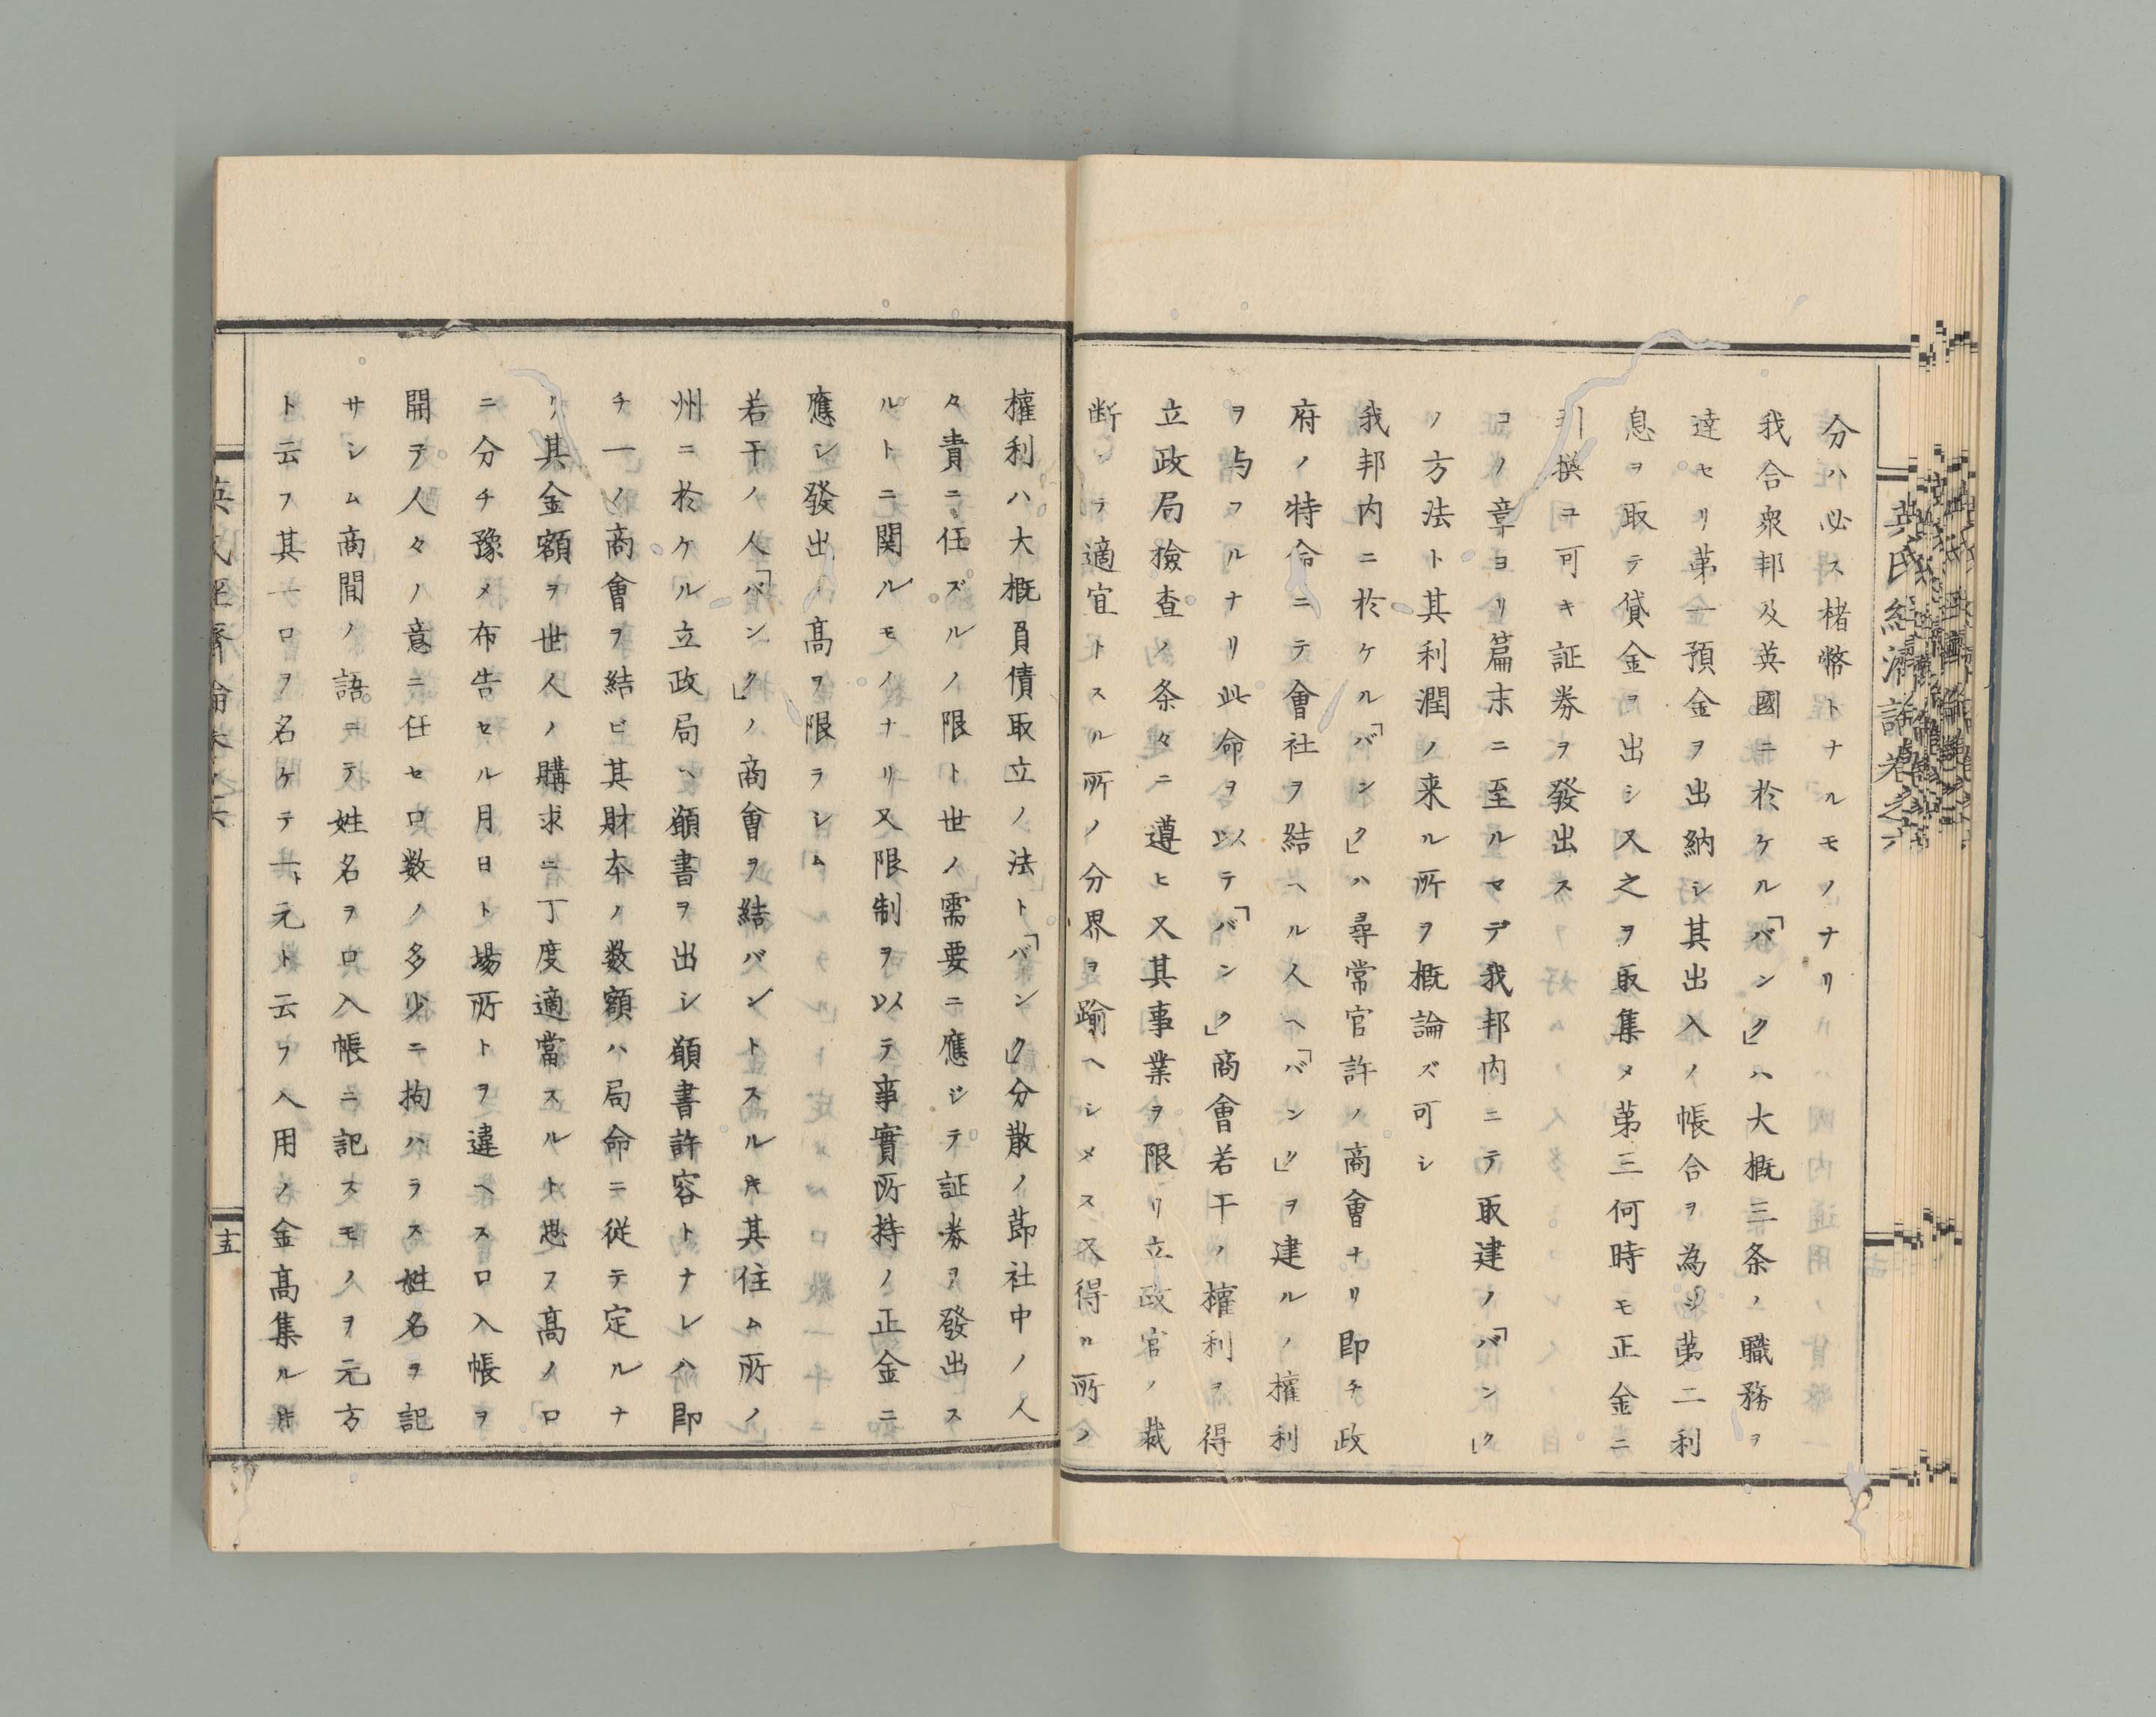 分ハ必ス楮幣トナルモノナリ
我合衆邦及英國ニ於ケル「バンク」ハ大概三条ノ職務ヲ
達セリ第一預金ヲ出納シ其出入ノ帳合ヲ為シ第二利
息ヲ取テ貸金ヲ出シ又之ヲ取集メ第三何時モ正金ニ
引換ユ可キ証券ヲ發出ス
コノ章ヨリ篇末ニ至ルマデ我邦内ニテ取建ノ「バンク」
ノ方法ト其利潤ノ来ル所ヲ概論ズ可シ
我邦内ニ於ケル「バンク」ハ尋常官許ノ商會ナリ即チ政
府ノ特命ニテ會社ヲ結ヘル人ヘ「バンク」ヲ建ルノ權利
ヲ与フルナリ此命ヲ以テ「バンク」商會若干ノ權利ヲ得
立政局撿査ノ条々ニ遵ヒ又其事業ヲ限リ立政官ノ裁
断シテ適宜トスル所ノ分界ヲ踰ヘシメス又得ル所ノ
權利ハ大概負債取立ノ法ト「バンク」分散ノ節社中ノ人
々責ニ任ズルノ限ト世ノ需要ニ應ジテ証券ヲ發出ス
ルトニ関ルモノナリ又限制ヲ以テ事實所持ノ正金ニ
應シ發出ノ高ヲ限ラシム
若干ノ人「バンク」ノ商會ヲ結バントスル片其住ム所ノ
州ニ於ケル立政局ヘ願書ヲ出シ願書許容トナレハ即
チ一ノ商會ヲ結ビ其財本ノ数額ハ局命ニ従テ定ルナ
リ其金額ヲ世人ノ購求ニ丁度適當スルト思フ高ノ口
ニ分チ豫メ布告セル月日ト場所トヲ違ヘス口入帳ヲ
開ヲ人々ノ意ニ任セ口数ノ多少ニ拘ハラス姓名ヲ記
サシム商間ノ語ニテ姓名ヲ口入帳ニ記スモノヲ元方
ト云フ其一口ヲ名ケテ一ト元ト云フ入用ノ金高集ル片
英氏經濟論卷之六
十五